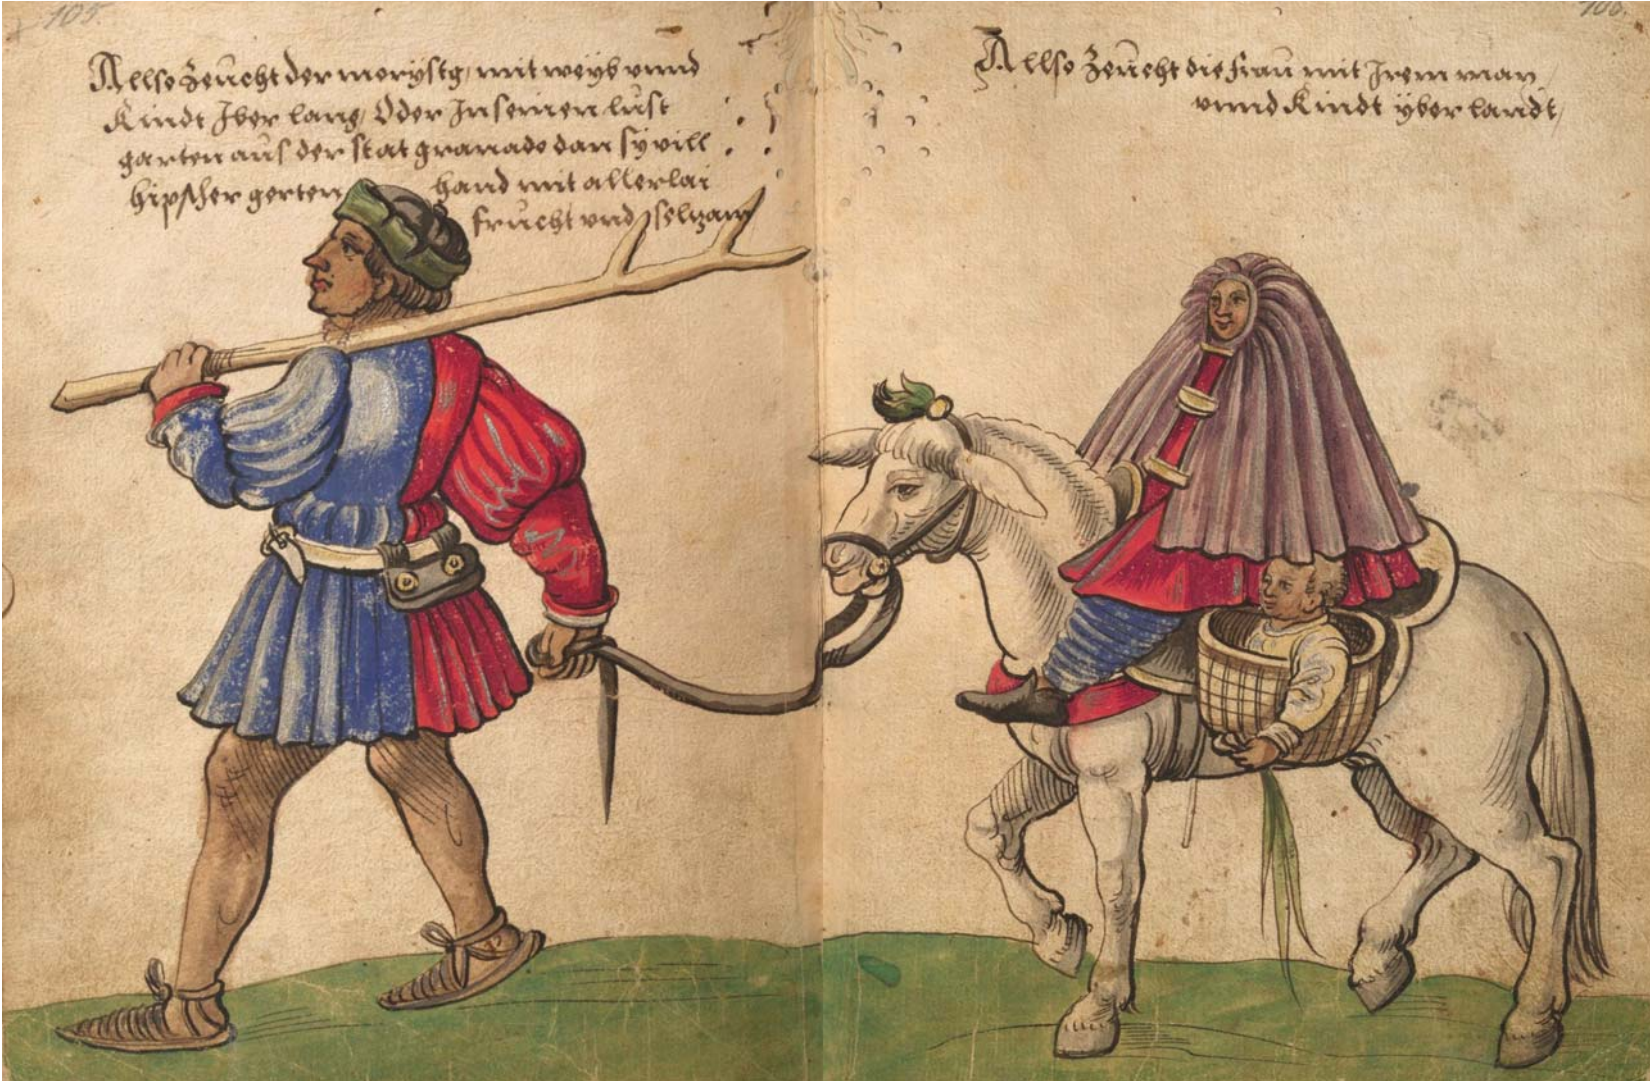 105.
Allso zeücht der morystg, mit weyb vnnd
Kindt Iber lang, Oder In seinen lust
garten aüs der stat granado dan sÿ vill
hipscher gerten hand mit allerlai
frücht vnd selzam
106.
Allso zeücht die fraü mit Irem man,
vnnd Kindt ÿber landt,